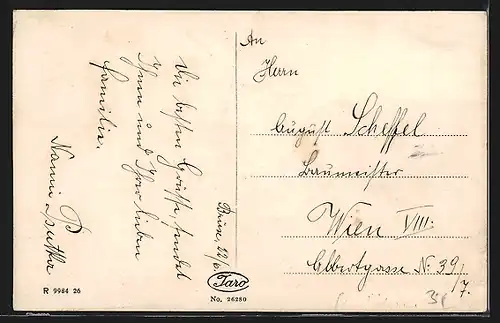 An
Herrn
August Scheffel
Baumeister
Wien VIII.
Albertgasse N: 39/7.
Die besten Grüsse sendet
Ihnen und Ihrer lieben
Familie.
Nanni
Brünn, 22/6.
Jaro
No. 26280
R 9984 26